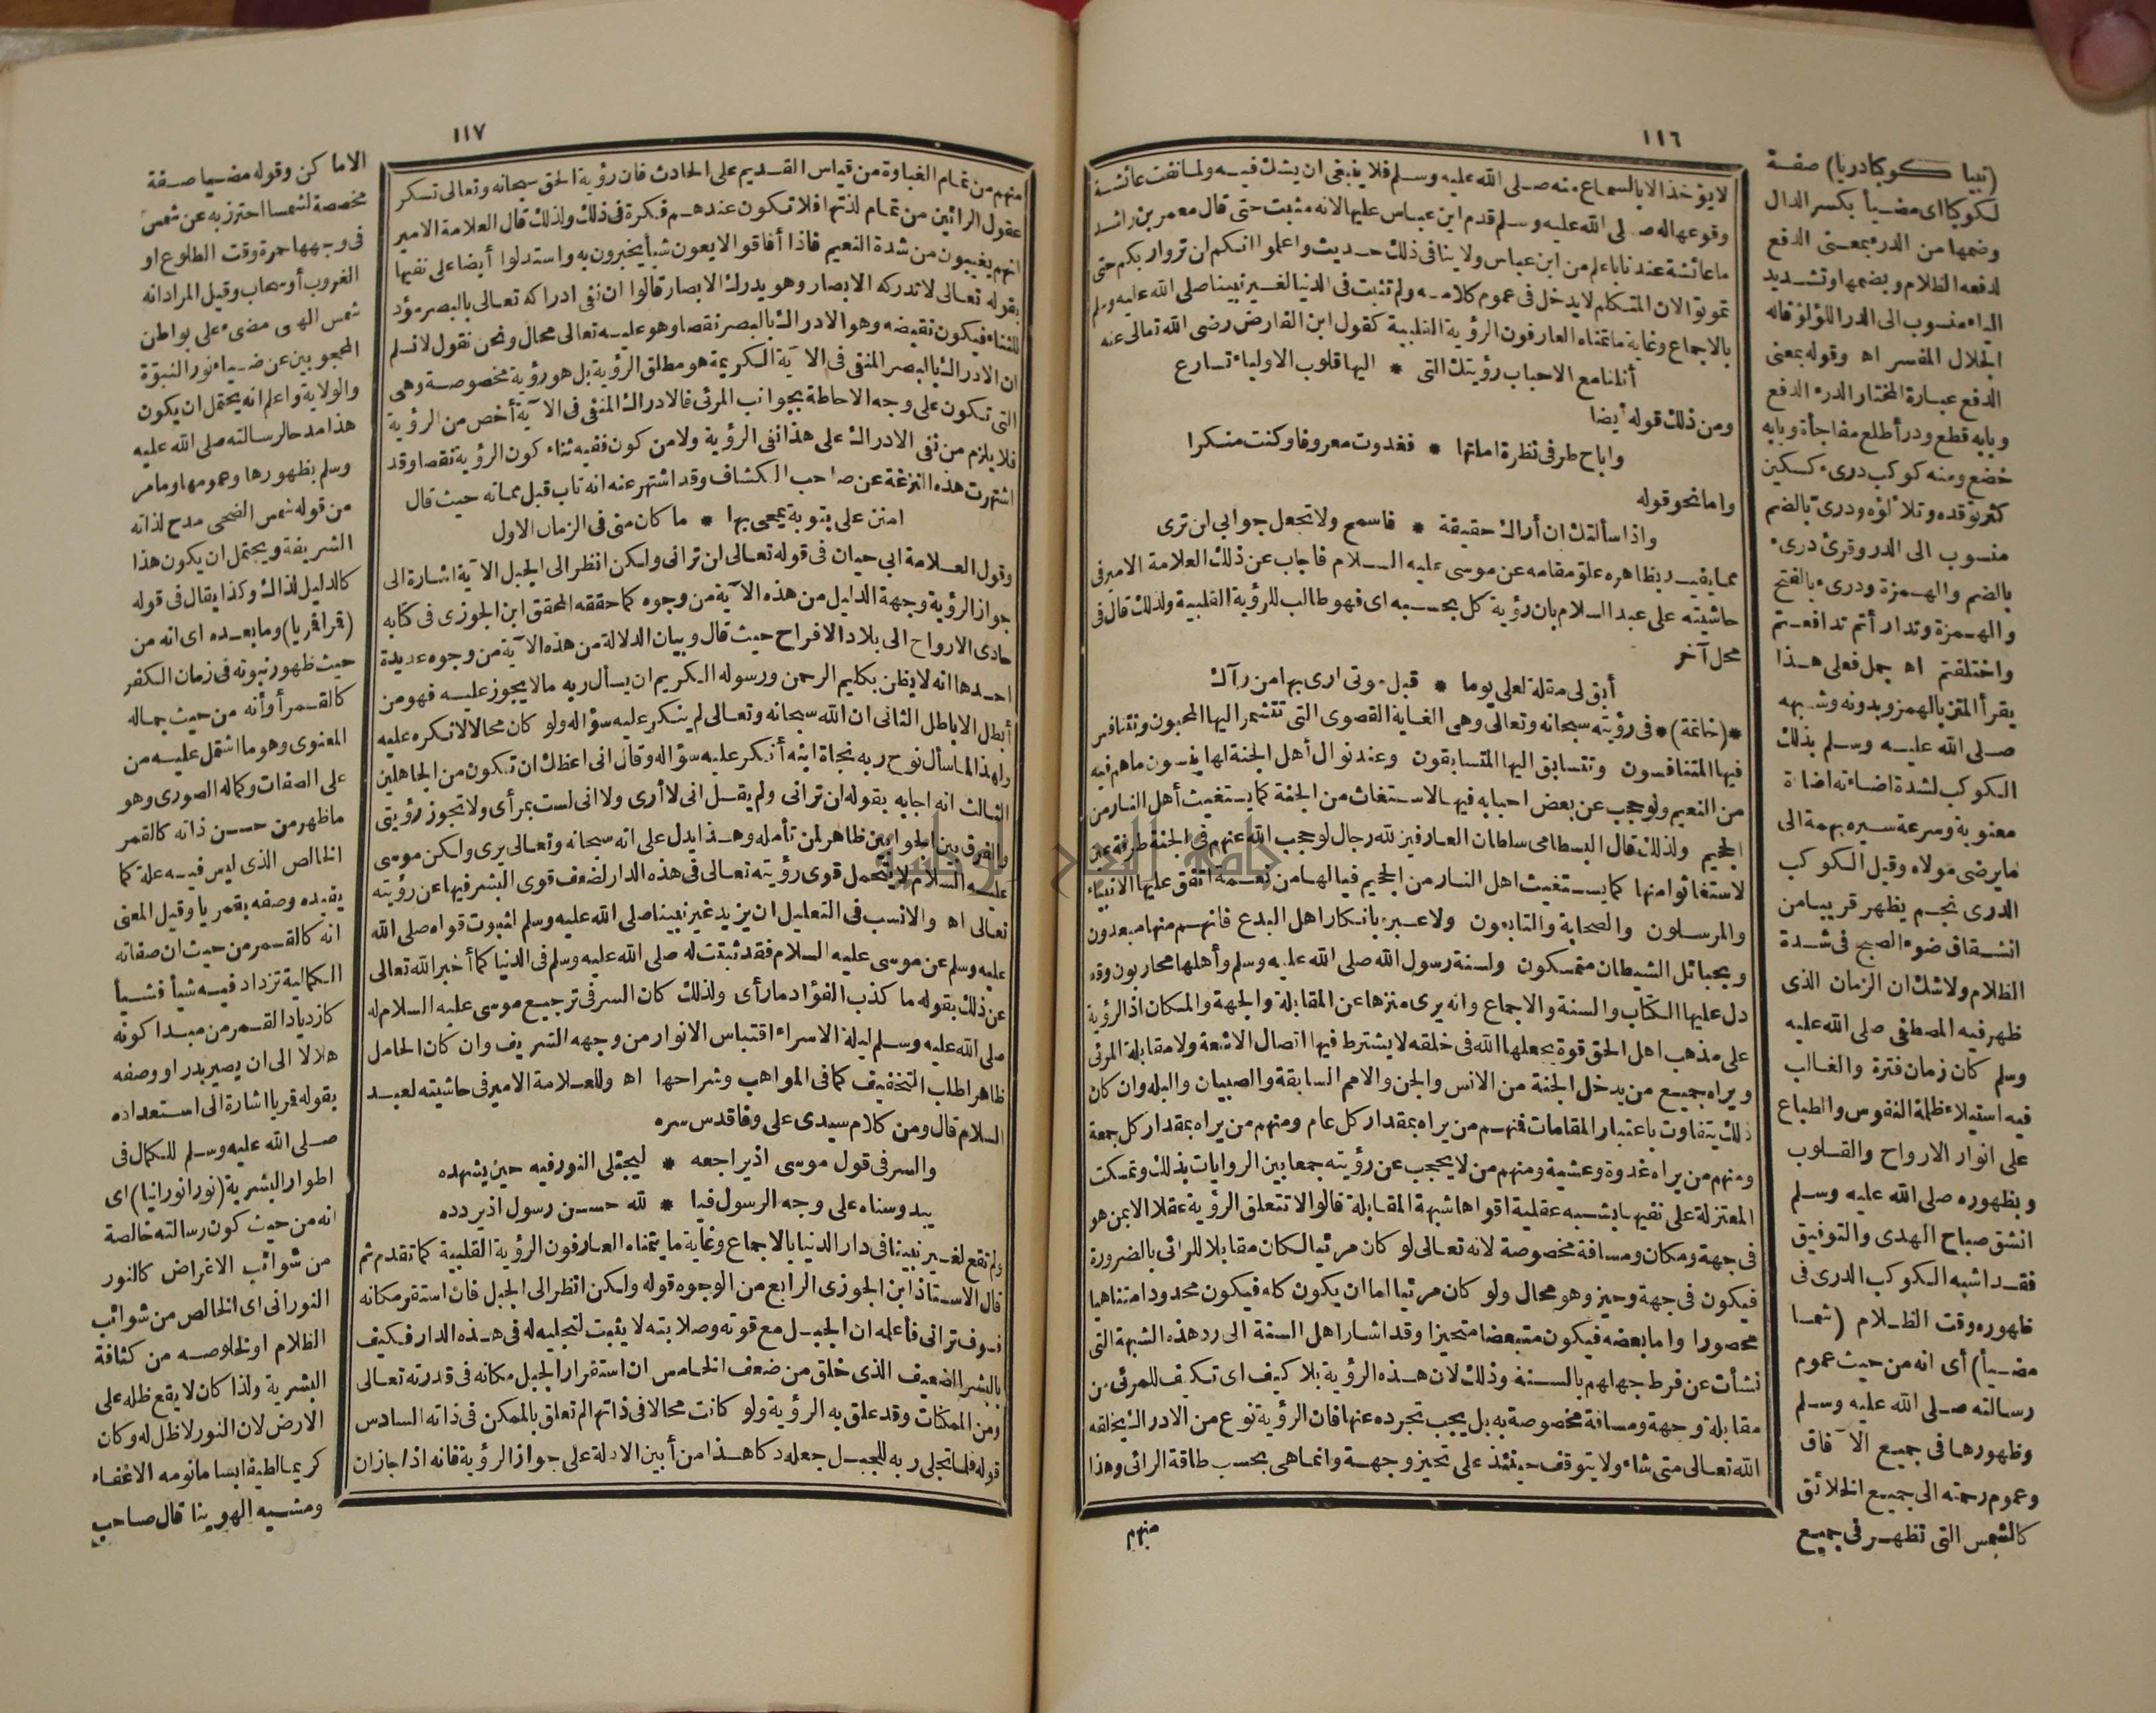 ١١٦
لا يؤخذ الا بالسماع منه صلى الله عليه وسلم فلا ينبغي ان يشك فيه ولما نفت عائشة
وقوعها له صلى الله عليه وسلم قدم ابن عباس عليها لانه مثبت حتى قال معمر بن راشد
ما عائشة عندنا باعلم من ابن عباس ولا ينافى ذلك حديث واعلموا انكم لن تروا ربكم حتى
تموتوا لان المتكلم لا يدخل فى عموم كلامه ولم تثبت فى الدنيا لغير نبينا صلى الله عليه وسلم
بالاجماع وغاية ما تمناه العارفون الرؤية القلبية كقول ابن الفارض رضى الله تعالى عنه
أنلنا مع الاحباب رؤيتك التى * اليها قلوب الاولياء تسارع
ومن ذلك قوله أيضا
واباح طرفى نظرة املتها * فغدوت معروفا وكنت منكرا
واما نحو قوله
واذا سألتك ان أراك حقيقة * فاسمح ولا تجعل جوابى لن ترى
مما يفيد بظاهره علو مقامه عن موسى عليه السلام فاجاب عن ذلك العلامة الامير فى
حاشيته على عبد السلام بان رؤية كل بحسبه اى فهو طالب للرؤية القلبية ولذلك قال فى
محل آخر
أبق لى مقلة لعلى يوما * قبل موتى ارى بها من رآك
*(خاتمة)* فى رؤيته سبحانه وتعالى وهى الغاية القصوى التى تتشمر اليها المحبون وتتنافس
فيها المتنافسون وتتسابق اليها المتسابقون وعند نوال أهل الجنة لها ينسون ما هم فيه
من النعيم ولو حجب عن بعض احبابه فيها لاستغاث من الجنة كما يستغيث أهل النار من
الجحيم ولذلك قال البسطامى سلطان العارفين لله رجال لو حجب الله عنهم فى الجنة طرفة عين
لاستغاثوا منها كما يستغيث اهل النار من الجحيم فيا لها من نعمة اتفق عليها الانبياء
والمرسلون والصحابة والتابعون ولا عبرة بانكار اهل البدع فانهم منها مبعدون
وبحبائل الشيطان متمسكون ولسنة رسول الله صلى الله عليه وسلم وأهلها محاربون وقد
دل عليها الكتاب والسنة والاجماع وانه يرى منزها عن المقابلة والجهة والمكان اذ الرؤية
على مذهب اهل الحق قوة يجعلها الله فى خلقه لا يشترط فيها اتصال الاشعة ولا مقابلة المرئى
ويراه جميع من يدخل الجنة من الانس والجن والامم السابقة والصبيان والبله وان كان
ذلك يتفاوت باعتبار المقامات فنهم من يراه بمقدار كل عام ومنهم من يراه بمقدار كل جمعة
ومنهم من يراه غدوة وعشية ومنهم من لا يحجب عن رؤيته جمعا بين الروايات بذلك وتمسكت
المعتزلة على نفيها بشبه عقلية اقواها شبهة المقابلة قالوا لا تتعلق الرؤية عقلا الا بمن هو
فى جهة ومكان ومسافة مخصوصة لانه تعالى لو كان مرئيا لكان مقابلا للرائى بالضرورة
فيكون فى جهة وحيز وهو محال ولو كان مرئيا اما ان يكون كله فيكون محدودا متناهيا
محصورا واما بعضه فيكون متبعضا متحيزا وقد اشار اهل السنة الى رد هذه الشبهة التى
نشأت عن فرط جهلهم بالسنة وذلك لان هذه الرؤية بلا كيف اى تكيف للمرئى من
مقابلة وجهة ومسافة مخصوصة به بل يجب تجرده عنها فان الرؤية نوع من الادراك يخلقه
الله تعالى متى شاء ولا يتوقف حينئذ على تحيز وجهة وانما هى بحسب طاقة الرائى وهذا
منهم
(نبيا كوكبا دريا) صفة
لكوكبا اى مضيأ بكسر الدال
وضمها من الدرء بمعنى الدفع
لدفعه الظلام وبضمها وتشديد
الياء منسوب الى الدر اللؤلؤ قاله
الجلال المفسر اه وقوله بمعنى
الدفع عبارة المختار الدرء الدفع
وبابه قطع ودرأ طلع مفاجأة وبابه
خضع ومنه كوكب درىء كسكين
كثر توقده وتلألؤه ودرى بالضم
منسوب الى الدر وقرئ درىء
بالضم والهمزة ودرىء بالفتح
والهمزة وتدارأتم تدافعتم
واختلفتم اه جمل فعلى هذا
يقرأ المتن بالهمز وبدونه وشبهه
صلى الله عليه وسلم بذلك
الكوكب لشدة اضاءته اضاءة
معنوية وسرعة سيره بهمة الى
ما يرضى مولاه وقيل الكوكب
الدرى نجم يظهر قريبا من
انشقاق ضوء الصبح فى شدة
الظلام ولا شك ان الزمان الذى
ظهر فيه المصطفى صلى الله عليه
وسلم كان زمان فترة والغالب
فيه استيلاء ظلمة النفوس والطباع
على انوار الارواح والقلوب
وبظهوره صلى الله عليه وسلم
انشق صباح الهدى والتوفيق
فقد اشبه الكوكب الدرى فى
ظهوره وقت الظلام (شمسا
مضيأ) أى انه من حيث عموم
رسالته صلى الله عليه وسلم
وظهورها فى جميع الآفاق
وعموم رحمته الى جميع الخلائق
كالشمس التى تظهر فى جميع
١١٧
منهم من تمام الغباوة من قياس القديم على الحادث فان رؤية الحق سبحانه وتعالى تسكر
عقول الرائين من تمام لذتها فلا تكون عندهم فكرة فى ذلك ولذلك قال العلامة الامير
انهم يغيبون من شدة النعيم فاذا أفاقوا لا يعون شيأ يخبرون به واستدلوا أيضا على نفيها
بقوله تعالى لا تدركه الابصار وهو يدرك الابصار قالوا ان نفى ادراكه تعالى بالبصر مؤد
للثناء فيكون نقيضه وهو الادراك بالبصر نقصا وهو عليه تعالى محال ونحن نقول لا نسلم
ان الادراك بالبصر المنفى فى الآية الكريمة هو مطلق الرؤية بل هو رؤية مخصوصة وهى
التى تكون على وجه الاحاطة بجوانب المرئى فالادراك المنفى فى الآية أخص من الرؤية
فلا يلزم من نفى الادراك على هذا نفى الرؤية ولا من كون نفيه ثناء كون الرؤية نقصا وقد
اشتهرت هذه النزغة عن صاحب الكشاف وقد اشتهر عنه انه تاب قبل مماته حيث قال
امنن على بتوبة يمحى بها * ما كان منى فى الزمان الاول
وقول العلامة ابى حيان فى قوله تعالى لن ترانى ولكن انظر الى الجبل الآية اشارة الى
جواز الرؤية وجهة الدليل من هذه الآية من وجوه كما حققه المحقق ابن الجوزى فى كتابه
حادى الارواح الى بلاد الافراح حيث قال وبيان الدلالة من هذه الآية من وجوه عديدة
احدها انه لا يظن بكليم الرحمن ورسوله الكريم ان يسأل ربه ما لا يجوز عليه فهو من
أبطل الاباطل الثانى ان الله سبحانه وتعالى لم ينكر عليه سؤاله ولو كان محالا لانكره عليه
ولهذا لما سأل نوح ربه نجاة ابنه أنكر عليه سؤاله وقال انى اعظك ان تكون من الجاهلين
الثالث انه اجابه بقوله لن ترانى ولم يقل انى لا أرى ولا انى لست بمرأى ولا تجوز رؤيتى
والفرق بين الجوابين ظاهر لمن تأمله وهذا يدل على انه سبحانه وتعالى يرى ولكن موسى
عليه السلام لا تتحمل قوى رؤيته تعالى فى هذه الدار لضعف قوى البشر فيها عن رؤيته
تعالى اه والانسب فى التعليل ان يزيد غير نبينا صلى الله عليه وسلم لثبوت قواه صلى الله
عليه وسلم عن موسى عليه السلام فقد ثبتت له صلى الله عليه وسلم فى الدنيا كما أخبر الله تعالى
عن ذلك بقوله ما كذب الفؤاد ما رأى ولذلك كان السر فى ترجيع موسى عليه السلام له
صلى الله عليه وسلم ليلة الاسراء اقتباس الانوار من وجهه الشريف وان كان الحامل
ظاهرا طلب التخفيف كما فى المواهب وشراحها اه وللعلامة الامير فى حاشيته لعبد
السلام قال ومن كلام سيدى على وفا قدس سره
والسر فى قول موسى اذ يراجعه * ليجتلى النور فيه حين يشهده
يبدو سناه على وجه الرسول فيا * لله حسن رسول اذ يردده
ولم تقع لغير نبينا فى دار الدنيا بالاجماع وغاية ما يتمناه العارفون الرؤية القلبية كما تقدم ثم
قال الاستاذ ابن الجوزى الرابع من الوجوه قوله ولكن انظر الى الجبل فان استقر مكانه
فسوف ترانى فأعلمه ان الجبل مع قوته وصلابته لا يثبت لتجليه له فى هذه الدار فكيف
بالبشر الضعيف الذى خلق من ضعف الخامس ان استقرار الجبل مكانه فى قدرته تعالى
ومن الممكنات وقد علق به الرؤية ولو كانت محالا فى ذاتها لم تعلق بالممكن فى ذاته السادس
قوله فلما تجلى ربه للجبل جعله دكا هذا من أبين الادلة على جواز الرؤية فانه اذا جاز ان
الاماكن وقوله مضيا صفة
مخصصة لشمسا احترز به عن شمس
فى وجهها حمرة وقت الطلوع او
الغروب أو سحاب وقيل المراد انه
شمس الهى مضىء على بواطن
المحجوبين عن ضياء نور النبوة
والولاية واعلم انه يحتمل ان يكون
هذا مدحا لرسالته صلى الله عليه
وسلم بظهورها وعمومها وما مر
من قوله شمس الضحى مدح لذاته
الشريفة ويحتمل ان يكون هذا
كالدليل لذاك وكذا يقال فى قوله
(قمرا قمريا) وما بعده اى انه من
حيث ظهور نبوته فى زمان الكفر
كالقمر أو أنه من حيث جماله
المعنوى وهو ما اشتمل عليه من
على الصفات وكماله الصورى وهو
ما ظهر من حسن ذاته كالقمر
الخالص الذى ليس فيه علة كما
يفيده وصفه بقمريا وقيل المعنى
انه كالقمر من حيث ان صفاته
الكمالية تزداد فيه شيأ فشيأ
كازدياد القمر من مبدا كونه
هلالا الى ان يصير بدرا ووصفه
بقوله قمريا اشارة الى استعداده
صلى الله عليه وسلم للكمال فى
اطوار البشرية (نورا نورانيا) اى
انه من حيث كون رسالته خالصة
من شوائب الاغراض كالنور
النورانى اى الخالص من شوائب
الظلام او لخلوصه من كثافة
البشرية ولذا كان لا يقع ظله على
الارض لان النور لا ظل له وكان
كريما لطيفا بساما نومه الاغفاء
ومشيه الهوينا قال صاحب